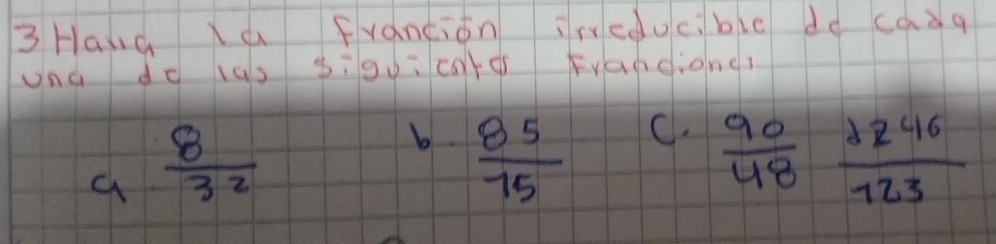 3 Halla la franción irreducible de cada
una de las siguientes franciones
a 8/32 b. 85/15 c. 90/48 d 246/123